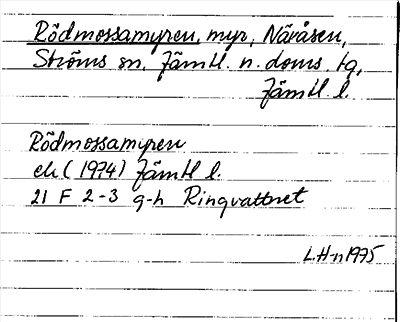 Rödmossamyren, myr, Näråsen,
Ströms sn, Jämtl. n. doms. tg,
Jämtl l.
Rödmossamyren
ek (1974) Jämtl l.
21 F 2-3 g-h Ringvattnet
L.H-n 1975